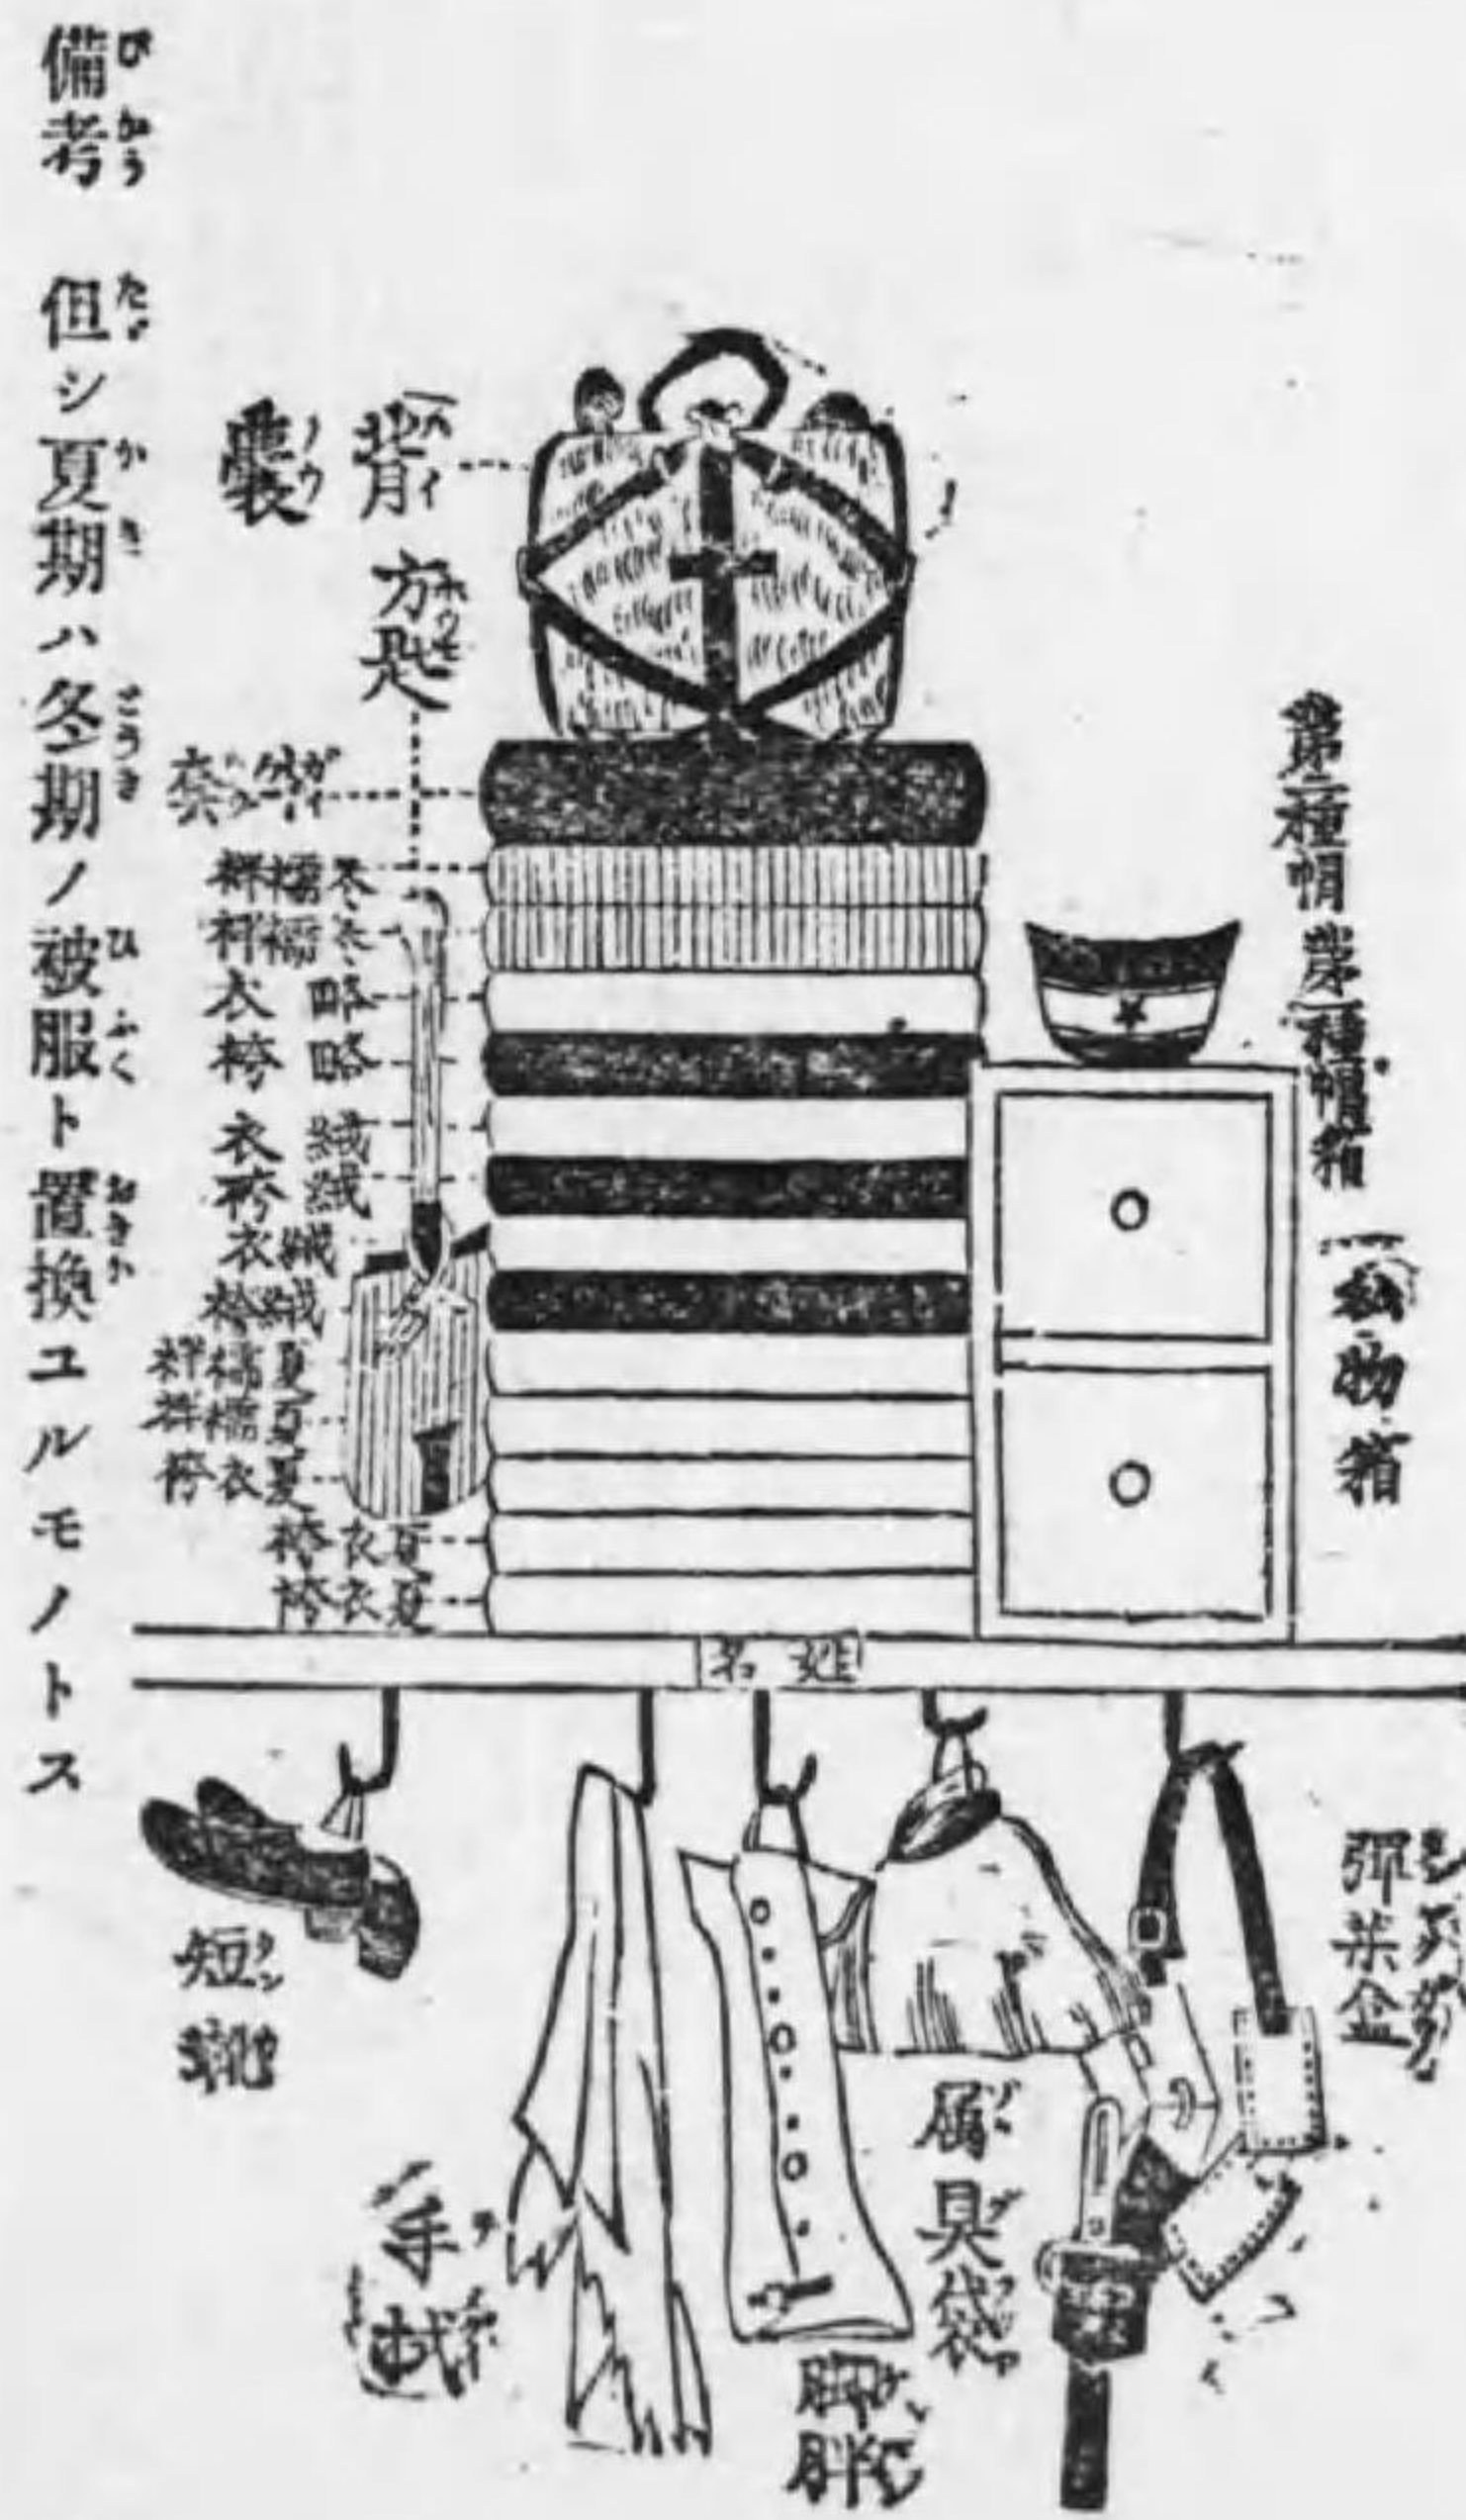 第二種帽
第一種帽箱
私物箱
背嚢
ハイノウ
方匙
外套
冬襦袢
冬襦袢
略衣
略袴
絨衣
絨袴
絨衣
絨袴
夏襦袢
夏襦袢
夏衣袴
夏衣袴
夏衣袴
姓名
彈薬盒
属具袋
脚胖
手拭
短靴
備考 但シ夏期ハ冬期ノ被服ト置換ユルモノトス